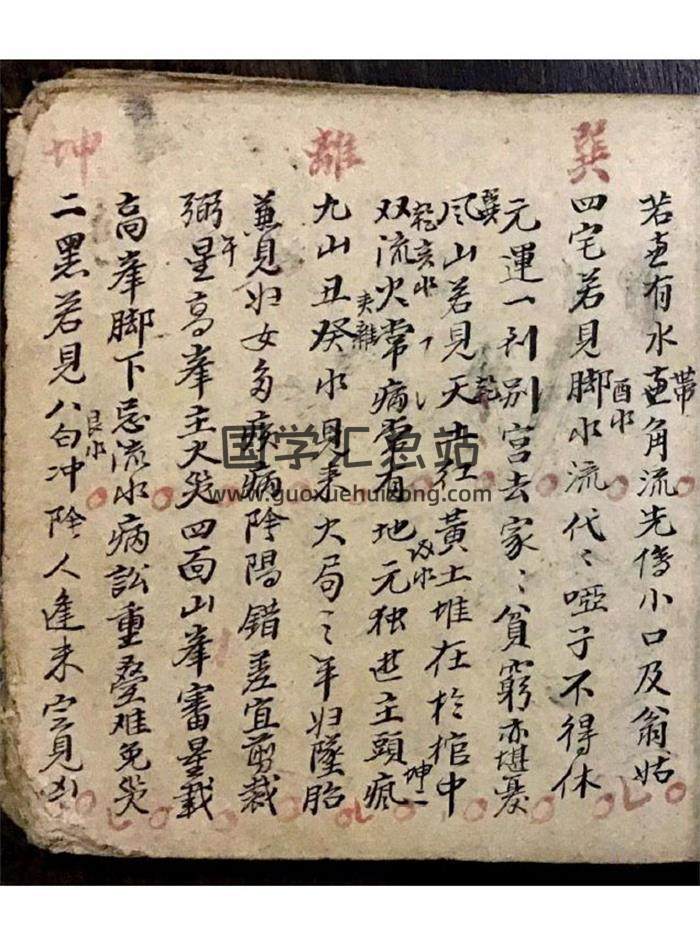 巽
離
坤
若
有水
角流先傷小口及翁姑
帶
四宅若見脚水流代〻啞子不得休
酉水
元運一到別宮去家〻貧窮亦堪憂
巽
風山若見天
黃土堆在於棺中
乾
乾亥水
双流火常病
有地元独
主頭瘋
坤二
九山丑癸水見来火局
年妇墜胎
夹離
兼見妇女多
病陰陽錯差宜剪裁
弼星高峯主火災四面山峯審星裁
午
高峯脚下忌流水病訟重疊难免災
二黑若見八白冲陰人逢来
見凶
艮水
国学汇总站
www.guoxuehuizong.com